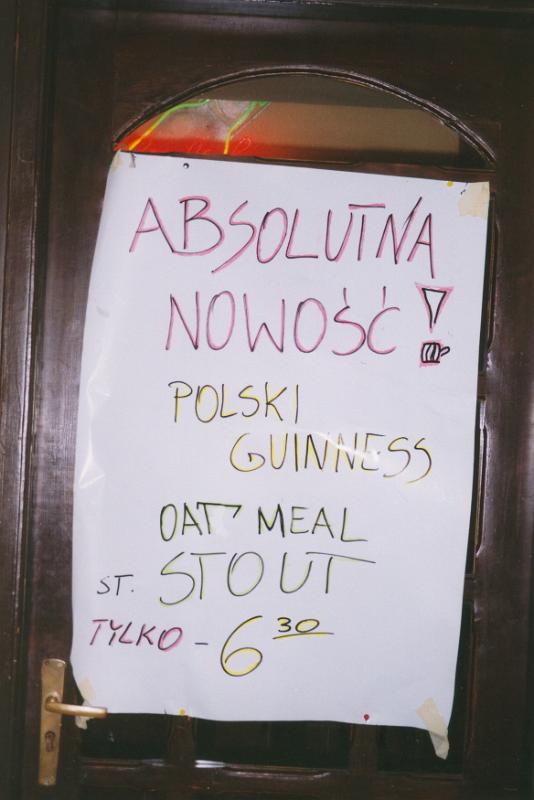 ABSOLUTNA
NOWOŚĆ!
POLSKI
GUINNESS
OAT MEAL
ST. STOUT
TYLKO - 6 30